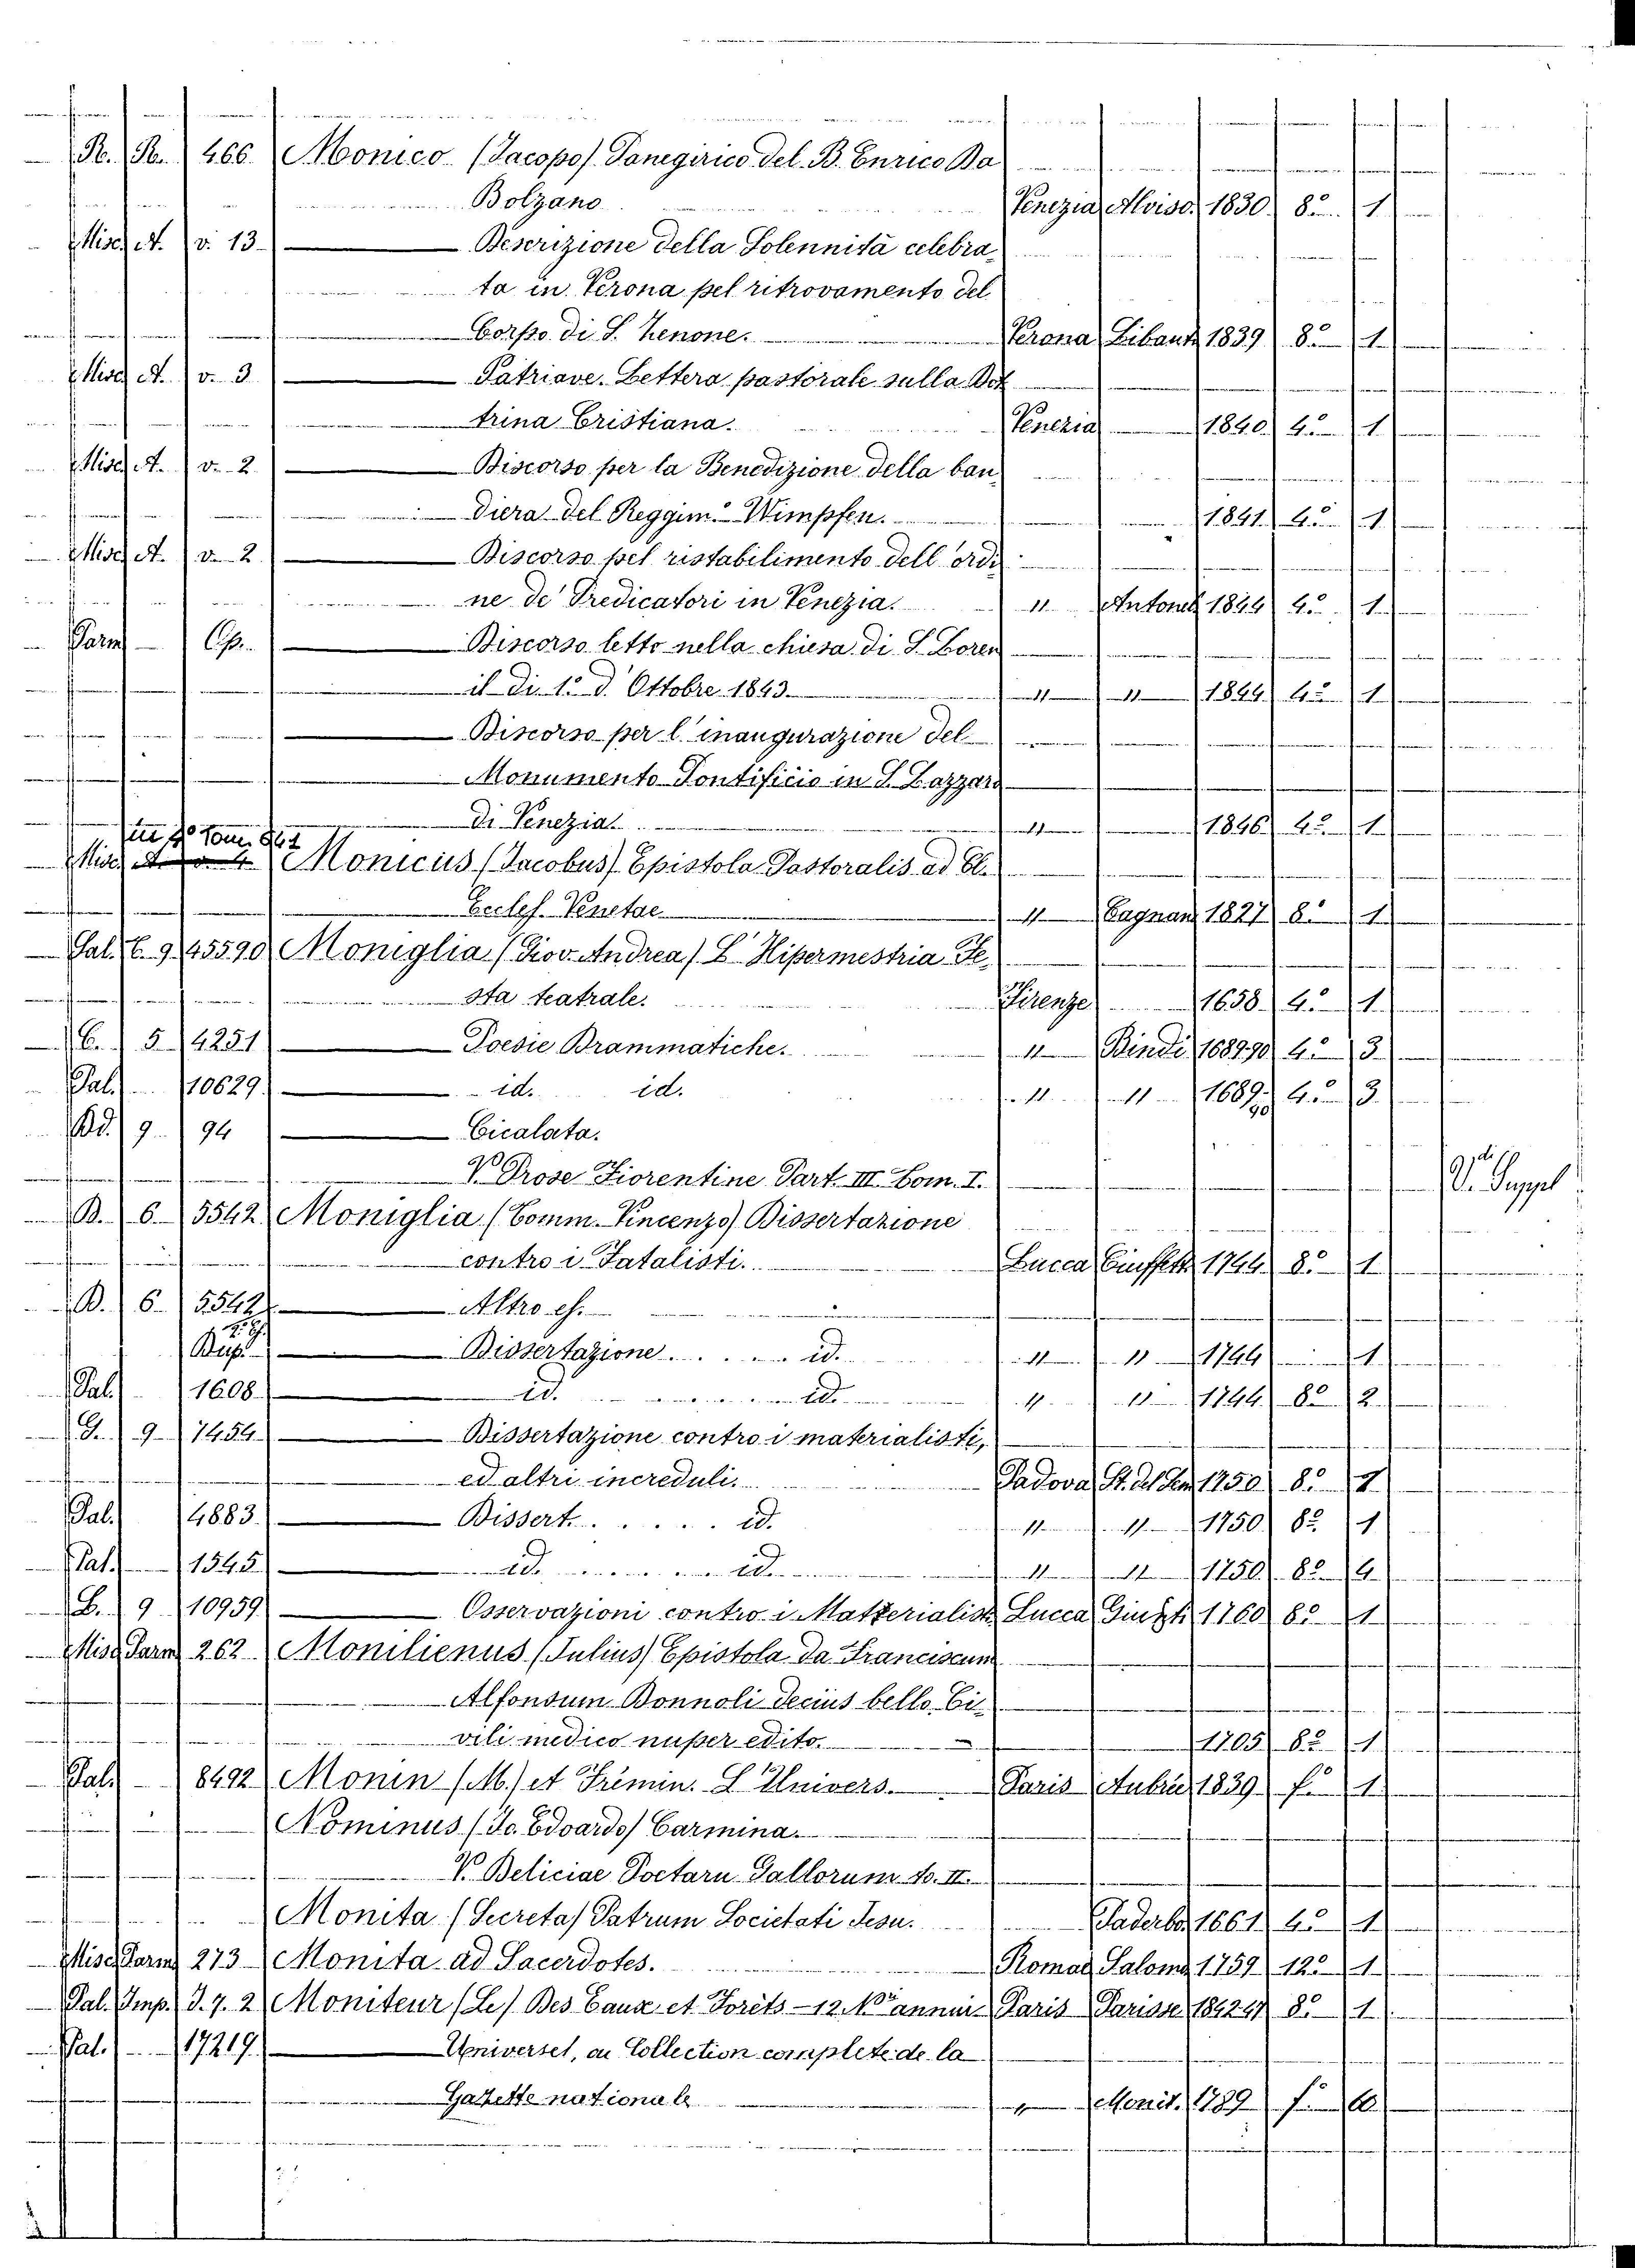 R. R. 466. Monico (Jacopo) Panegirico del B. Enrico Da
Bolzano Venezia Alviso. 1830. 8.° 1
Misc. A. v. 13. Descrizione della Solennità celebra
ta in Verona pel ritrovamento del
Corpo di S. Zenone. Verona Libanti 1839 8.° 1
Misc. A. v. 3 Patriave. Lettera pastorale sulla Dot
trina Cristiana. Venezia 1840. 4.° 1
Misc. A. v. 2. Discorso per la Benedizione della ban
diera del Reggim.° Wimpfen. 1841. 4.° 1
Misc. A. v. 2 Discorso pel ristabilimento dell'ordi
ne de' Predicatori in Venezia. " Antonel 1844 4.° 1
Parm Cp. Discorso letto nella chiesa di S. Loren
il di 1.° d. Ottobre 1843. " " 1844. 4.° 1
Discorso per l'inaugurazione del
Monumento Pontificio in S. Lazzaro
di Venezia. " 1846 4.° 1
Misc. A. v. 4 Monicus (Jacobus) Epistola Pastoralis ad Cl.
Eccles. Venetae " Cagnani 1827 8.° 1
Pal. C. 9. 45590 Moniglia (Giov. Andrea) L'Hipermestria Fe
sta teatrale. Firenze 1658 4.° 1
C. 5 4251 Poesie Drammatiche. " Bindi 1689.90 4.° 3
Pal. 10629. id. id. " " 1689.90 4.° 3
Bd. 9 94 Cicalata.
V. Prose Fiorentine Part. III. Tom. I.
V. Suppl
B. 6. 5542 Moniglia (Tomm. Vincenzo) Dissertazione
contro i Fatalisti. Lucca 1744 8.° 1
B. 6. 5542 Altro es.
Dup. Dissertazione . . . . . id. " " 1744 1
Pal. 1608. id. id. " " 1744. 8.° 2
G. 9 7454. Dissertazione contro i materialisti,
ed altri increduli. Padova St. del Sem 1750 8.° 2
Pal. 4883. Dissert. . . . . . id. " " 1750. 8.° 1
Pal. 1545 id. id. " " 1750. 8.° 4
B. 9 10959 Osservazioni contro i Matterialisti Lucca 1760 8.° 1
Misc Parm 262 Monilienus (Julius) Epistola da Franciscum
Alfonsum Donnoli decius bello Ci
vili medico nuper edito. 1705 8.° 1
Pal. 8492 Monin (M.) et Frémin. L'Univers. Paris Aubrée 1839 f.° 1
Nominus (Jo. Edoardo) Carmina.
V. Deliciae Poetaru Gallorum to. II.
Monita (Secreta) Patrum Societati Jesu. Paderbo 1661 4.° 1
Misc. Parm 273 Monita ad Sacerdotes. Romae Salomo 1759 12.° 1
Pal. Imp. I. 7. 2 Moniteur (Le) Des Eaux et Forêts - 12. Paris Parisse 1842.47 8.° 1
Pal. 17219. Universel, ou Collection complete de la
Gazzette nationale " Monit. 1789 f.°